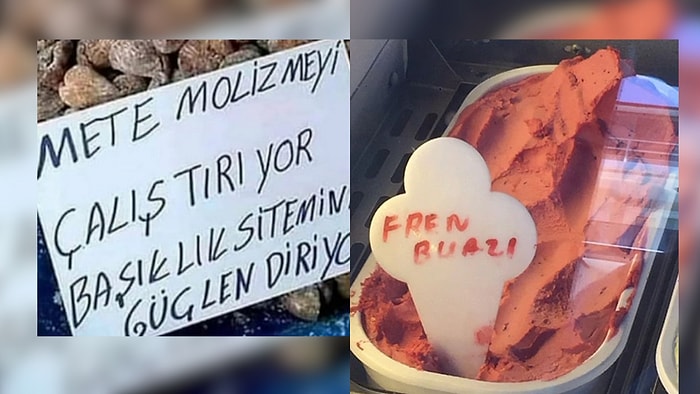 METE MOLİZMEYİ
ÇALIŞTIRIYOR
BAŞIKLIK SİTEMİN
GÜÇLENDİRİYO
FREN
BUAZI